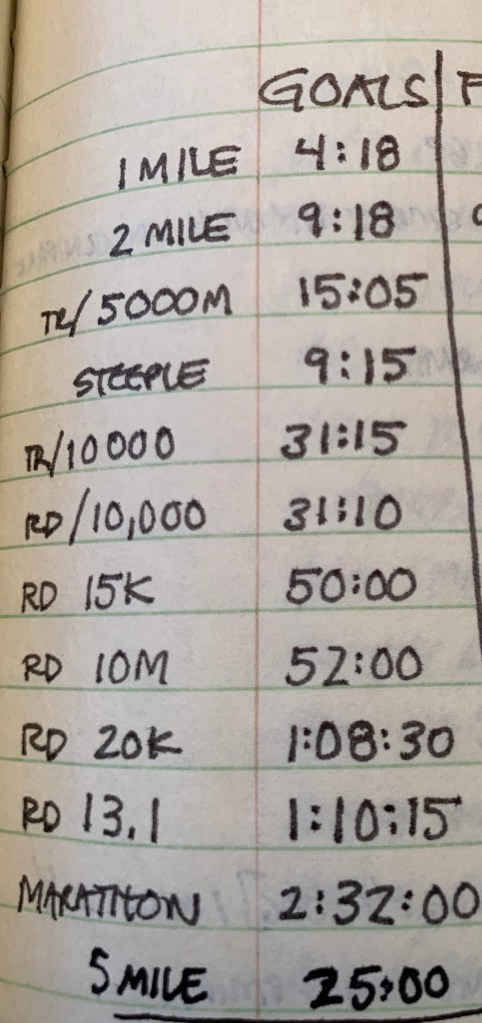 GOALS
1 MILE 4:18
2 MILE 9:18
TR/5000M 15:05
STEEPLE 9:15
TR/10000 31:15
RD/10,000 31:10
RD 15K 50:00
RD 10M 52:00
RD 20K 1:08:30
RD 13.1 1:10:15
MARATHON 2:32:00
5 MILE 25:00